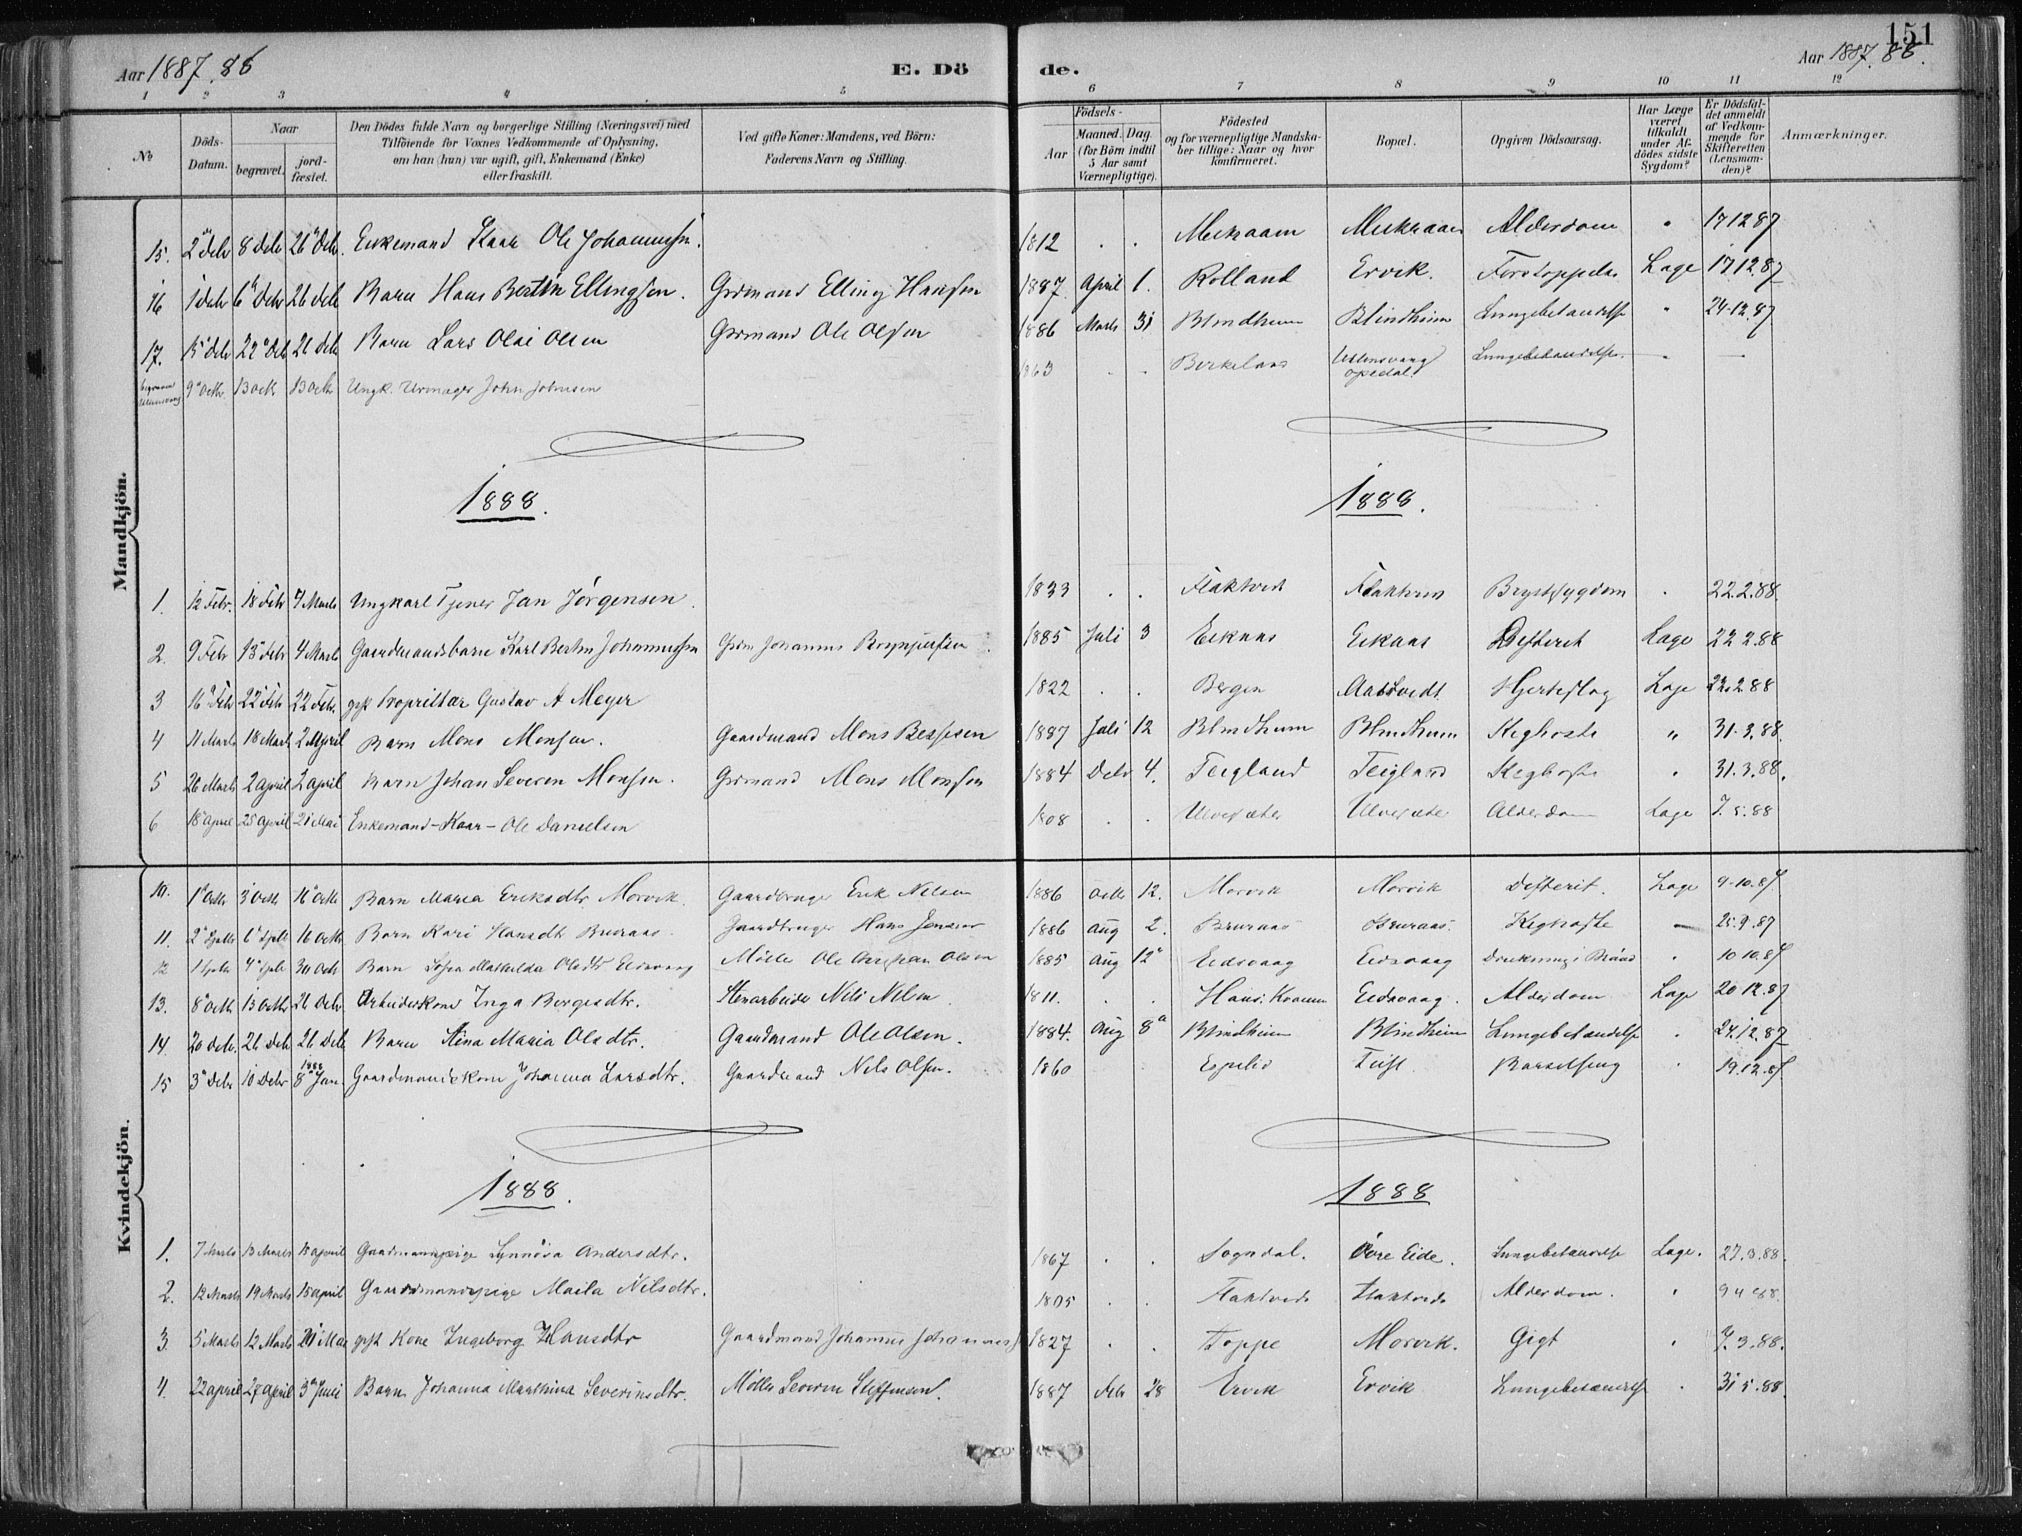 151
Aar 1887.88
E. Dö de.
Aar 1887.88.
1 2 3 4 5 6 7 8 9 10 11 12
No
Döds-Datum.
Naar
begravet.
jord-fæstet.
Den Dödes fulde Navn og borgerlige Stilling (Næringsvei) med
Tilföiende for Voxnes Vedkommende af Oplysning,
om han (hun) var ugift, gift, Enkemand (Enke)
eller fraskilt.
Ved gifte Koner: Mandens, ved Börn:
Faderens Navn og Stilling.
Födsels-
Aar
Maaned. Dag.
(for Börn indtil
5 Aar samt
Værnepligtige).
Födested
og for værnepligtige Mandska-
ber tillige: Naar og hvor
konfirmeret.
Bopæl.
Opgiven Dödsaarsag.
Har Læge
været
tilkaldt
under Af-
dödes sidste
Sygdom?
Er Dödsfal-
det anmeldt
af Vedkom-
mende for
Skifteretten
(Lensman-
den)?
Anmærkninger.
Mandkjön.
15. 2 Debr 8 Debr 26 Debr. Enkemand Kaar Ole Johannessen. 1812 . . Alderdom " 17 12 87
16 1 Debr 6 Debr 26 Debr Barn Hans Bertin Ellingsen. Grdmand Elling Hansen 1887 April 1. Rolland Ervik. Læge 17.12.87
17. 15 Debr 22 Debr 26 Debr Barn Lars Olai Olsen Grdmand Ole Olsen 1886 Marts 31 Blindheim Blindheim Lungebetændelse " 24-12.87
9 Octr 13 Octr 13 Octr Ungk. Urmager John Johnsen 1863 . . Birkeland Ullensvang Opedal. Lungebetændelse. — —
1888. 1888.
1. 12 Febr. 18 Febr 4 Marts Ungkarl Tjener Jan Jörgensen. 1833 . . Flaktvedt Brystsygdom . 22.2.88.
2. 9 Febr 13 Febr 4 Marts Gaardmandsbarn Karl Bertin Johannessen Grdm Johannes 1885 Juli 3 Eikaas Eikaas Difterit Læge 22 2.88
3 16 Febr 22 Febr 22 Febr. gift Proprietær Gustav A Meyer 1822 . . Bergen Aastvedt Hjerteslag Læge 22.2.88
4 11 Marts 18 Marts 2 April Barn Mons Monsen. Gaardmand Mons 1887 Juli 12 Blindheim Blindheim Kighoste " 31.3.88.
5 26 Marts 2 April 2 April Barn Johan Severin Monsen. Grdmand Mons Monsen 1884 Debr 4. Teigland Teigland Kighoste " 31.3.88.
6 18 April 25 April 21 Mai Enkemand-Kaar-Ole Danielsen 1808 . . Ulvesæter Ulvesæter Alderdom Læge 7.5.88
Kvindekjön.
10. 1 Octr 3 Octr 16 Octr Barn Maria Eriksdtr. Morvik. Gaardbruger Erik Nilsen 1886 Octr 12. Morvik Morvik Difterit. Læge 9-10.87
11. 2 Septr 6 Septr 16 Octr Barn Kari Hansdtr Bruraas. Gaardbruger Hans Jensen 1886 Aug 2. Bruraas Bruraas. Kighoste — 25.9.87
12 1 Septr 4 Septr 30 Octr Barn Mathilda Olsdtr Eidsvaag Möller Ole Olsen 1885 Aug 12 Eidsvaag Eidsvaag Drukning i Brönd " 10 10.87
13. 8 Octr 13 Octr 26 Debr Arbeiderskone Inga Borgesdtr. Stenarbeider Nils Nilsen 1811. . . Eidsvaag. Alderdom Læge 20 12.87
14. 20 Debr. 26 Debr 26 Debr Barn Stina Maria Olsdtr. Gaardmand Ole Olsen. 1884. Aug 8 Blindheim Blindheim Lungebetændelse " 24.12.87
15 3 Debr 10 Debr 1888 8 Jan Gaardmandskone Johanna Larsdtr. Gaardmand Nils Olsen. 1860 Espelid Barselseng . 19.12.87
1888. 1888
1. 7 Marts 13 Marts 15 April Gaardmandspige Synnöva Andersdtr. 1867 . . Sogndal. Övre Eide. Lungebetændelse Læge. 27.3.88.
2. 12 Marts 19 Marts 15 April Gaardmandspige Maila Nilsdtr. 1805 . . Flaktvedt Flaktvedt Alderdom. " 9 4 88.
3 5 Marts 12 Marts 21 Mai gift Kone Ingeborg Hansdtr Gaardmand Johannes 1827 . . Toppe Morvik. Gigt " 7.3.88.
4. 22 April 28 April 3 Juni Barn Johanna Marthina Severinsdtr. Möller Severin Steffensen. 1887 28 Ervik Ervik Lungebetændelse " 31 5.88